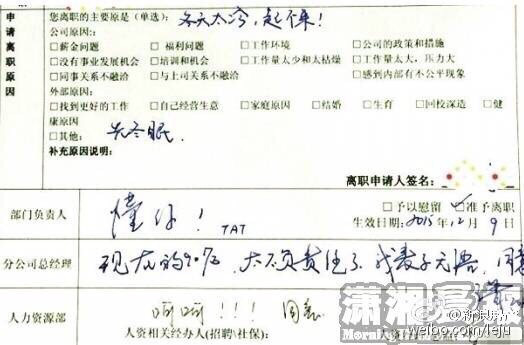 申请离职原因
您离职的主要原是(单选): 冬天太冷,起不来!
公司原因:
□薪金问题 □福利问题 □工作环境 □公司的政策和措施
□没有事业发展机会 □培训和机会 □工作量太少和太枯燥 □工作量太大,压力大
□同事关系不融洽 □与上司关系不融洽 □感到内部有不公平现象
外部原因:
□找到更好的工作 □自己经营生意 □家庭原因 □结婚 □生育 □回校深造 □健
康原因
□其他: 先冬眠.
补充原因说明:
离职申请人签名:
部门负责人 懂你! TAT
□予以慰留 □准予离职
生效日期: 2015.12月9日
分公司总经理 现在的90后,太不负责任了,我表示无语,同意
人力资源部 呵呵!!!
人资相关经办人(招聘\社保): 人资
潇湘晨报
Morning
@新浪乐居
weibo.com/leju